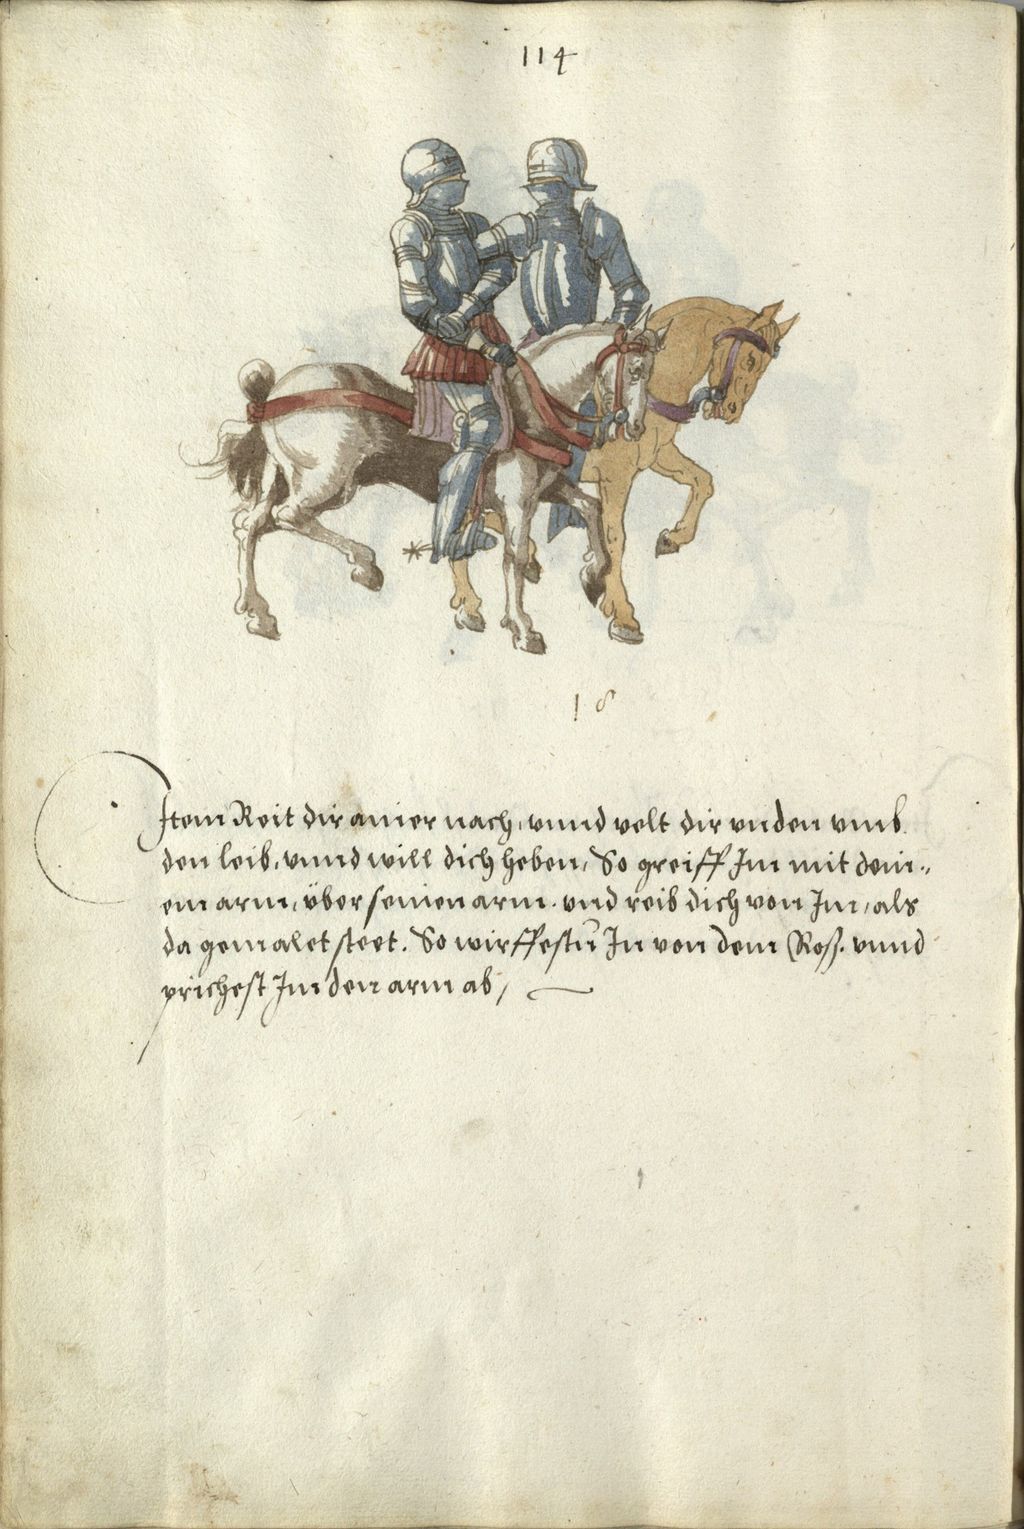 114
18
Item Reit dir ainer nach, unnd velt dir unden umb
den leib, unnd will dich heben, So greiff Im mit dein-
em arm, über seinen arm. und reib dich von Im, als
da gemalet steet. So wirffestu In von dem Roß. unnd
prichest Im den arm ab,